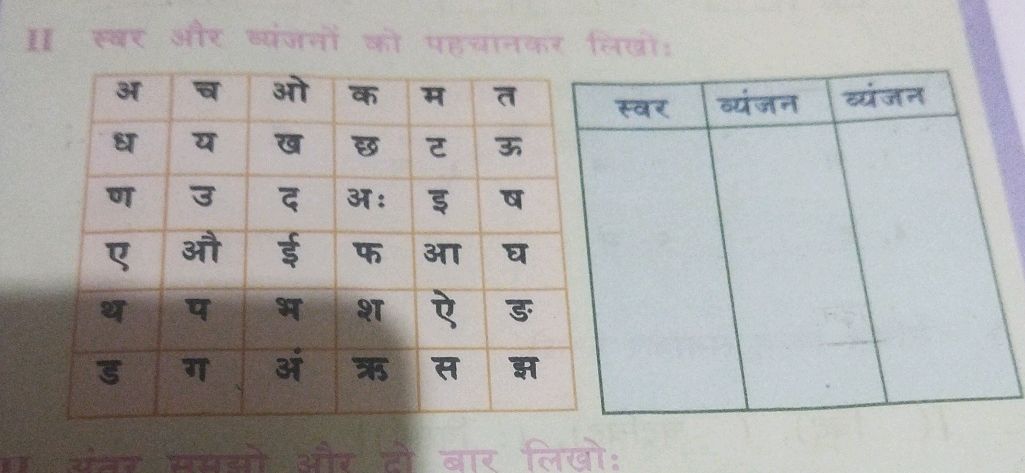 II स्वर और व्यंजनों को पहचानकर लिखो:
अ च ओ क म त
ध य ख छ ट ऊ
ण उ द अः इ ष
ए औ ई फ आ घ
थ प भ श ऐ ङ
ड ग अं ऋ स झ
स्वर व्यंजन व्यंजन
अंतर समझो और दो बार लिखो: